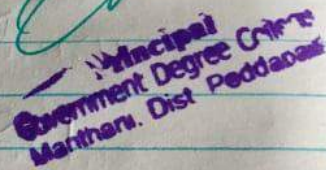 Principal
Government Degree College
Manthani. Dist Peddapalli